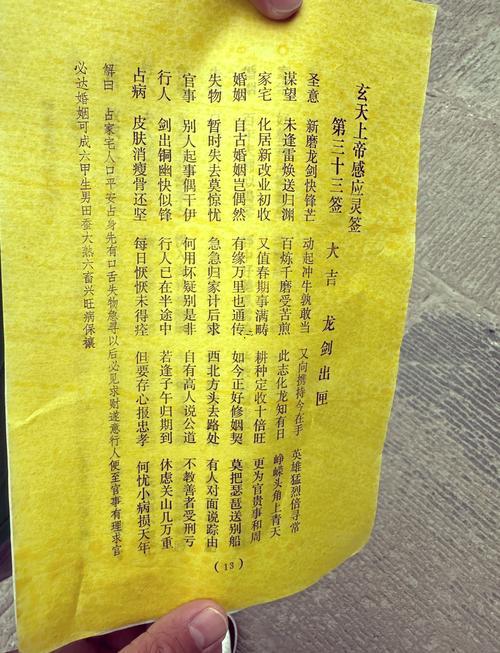 玄天上帝感应灵签
第三十三签 大吉 龙剑出匣
圣意 新磨龙剑快锋芒 动起冲牛孰敢当 又向携持今在手 英雄猛烈倍寻常
谋望 未逢雷焕送归渊 百炼千磨受苦煎 此志化龙知有日 峥嵘头角上青天
家宅 化居新改业初收 又值春期事满畴 耕种定收十倍旺 更为官贵事和周
婚姻 自古婚姻岂偶然 有缘万里也通传 如今正好修姻契 莫把瑟琶送别船
失物 暂时失去莫惊忧 急急归家计后求 西北方头去路处 有人对面说踪由
官事 别人起事偶干伊 何用坏疑别是非 自有高人说公道 不教善者受刑亏
行人 剑出铜幽快似锋 行人已在半途中 若逢子午归期到 休虑关山几万重
占病 皮肤消瘦骨还坚 每日恹恹未得痊 但要存心报忠孝 何忧小病损天年
解曰 占家宅人口平安占身先有口舌失物急寻以后必见求财遂意行人便至官事有理求官
必达婚姻可成六甲生男田蚕大熟六畜兴旺病保禳
(13)